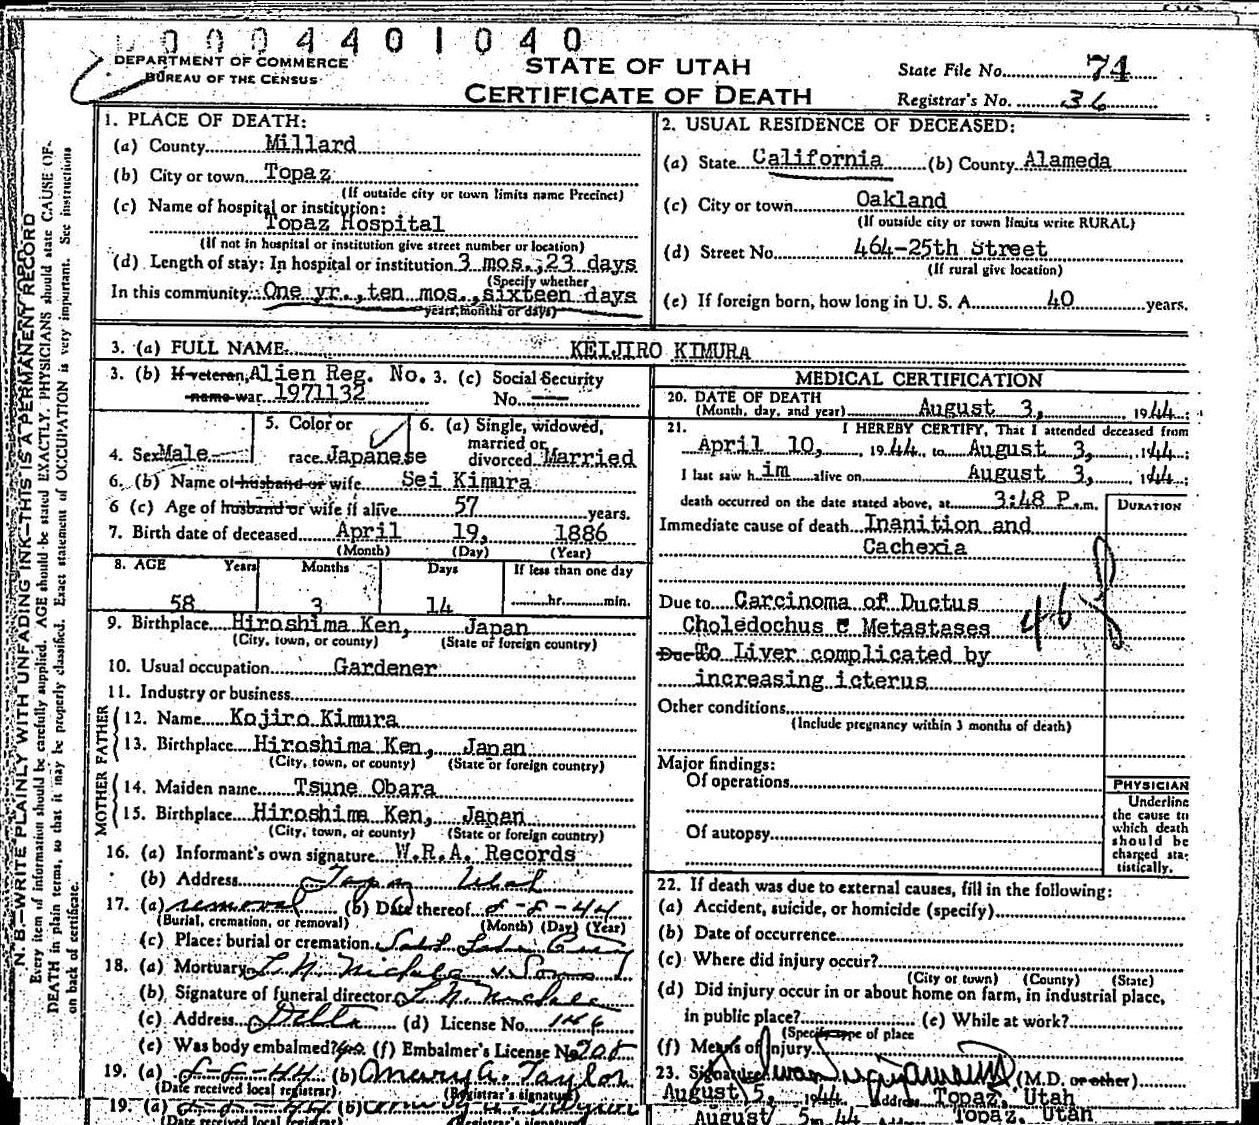 0004401040
DEPARTMENT OF COMMERCE
BUREAU OF THE CENSUS
STATE OF UTAH
CERTIFICATE OF DEATH
State File No. 74
Registrar's No. 36
N. B.—WRITE PLAINLY WITH UNFADING INK—THIS IS A PERMANENT RECORD
Every item of information should be carefully supplied. AGE should be stated EXACTLY. PHYSICIANS should state CAUSE OF
DEATH in plain terms, so that it may be properly classified. Exact statement of OCCUPATION is very important. See instructions
on back of certificate.
1. PLACE OF DEATH:
(a) County Millard
(b) City or town Topaz
(If outside city or town limits name Precinct)
(c) Name of hospital or institution:
Topaz Hospital
(If not in hospital or institution give street number or location)
(d) Length of stay: In hospital or institution 3 mos., 23 days
(Specify whether
In this community One yr., ten mos., sixteen days
years, months or days)
2. USUAL RESIDENCE OF DECEASED:
(a) State California (b) County Alameda
(c) City or town Oakland
(If outside city or town limits write RURAL)
(d) Street No. 464-25th Street
(If rural give location)
(e) If foreign born, how long in U. S. A. 40 years.
3. (a) FULL NAME KEIJIRO KIMURA
3. (b) If veteran, Alien Reg. No. 3. (c) Social Security
name war 1971132 No.
4. Sex Male
5. Color or
race Japanese
6. (a) Single, widowed,
married or
divorced Married
6. (b) Name of husband or wife Sei Kimura
6 (c) Age of husband or wife if alive 57 years.
7. Birth date of deceased April 19, 1886
(Month) (Day) (Year)
8. AGE Years Months Days If less than one day
58 3 14 hr. min.
9. Birthplace Hiroshima Ken, Japan
(City, town, or county) (State or foreign country)
10. Usual occupation Gardener
11. Industry or business
FATHER
12. Name Kojiro Kimura
13. Birthplace Hiroshima Ken, Japan
(City, town, or county) (State or foreign country)
MOTHER
14. Maiden name Tsune Obara
15. Birthplace Hiroshima Ken, Japan
(City, town, or county) (State or foreign country)
16. (a) Informant's own signature W.R.A. Records
(b) Address Topaz Utah
17. (a) removal (b) Date thereof 8-8-44
(Burial, cremation, or removal) (Month) (Day) (Year)
(c) Place: burial or cremation Salt Lake City
18. (a) Mortuary L. N. Nickle & Sons
(b) Signature of funeral director
(c) Address Delta (d) License No. 146
(e) Was body embalmed? (f) Embalmer's License No. 205
19. (a) 8-8-44 (b) Taylor
(Date received local registrar) (Registrar's signature)
19. (a) (b)
(Date received local registrar) (Registrar's signature)
MEDICAL CERTIFICATION
20. DATE OF DEATH
(Month, day, and year) August 3, 1944
21. I HEREBY CERTIFY, That I attended deceased from
April 10, 1944, to August 3, 1944
I last saw him alive on August 3, 1944
death occurred on the date stated above, at 3:48 P.m.
DURATION
Immediate cause of death Inanition and
Cachexia
Due to Carcinoma of Ductus
Choledochus c Metastases
46
Due To Liver complicated by
increasing icterus
Other conditions
(Include pregnancy within 3 months of death)
Major findings:
Of operations
Of autopsy
PHYSICIAN
Underline
the cause to
which death
should be
charged sta-
tistically.
22. If death was due to external causes, fill in the following:
(a) Accident, suicide, or homicide (specify)
(b) Date of occurrence
(c) Where did injury occur?
(City or town) (County) (State)
(d) Did injury occur in or about home on farm, in industrial place,
in public place? (e) While at work?
(Specify type of place
(f) Means of Injury
23. Signature (M.D. or other)
August 5, 1944 Address Topaz, Utah
August 5, 44 Topaz, Utah